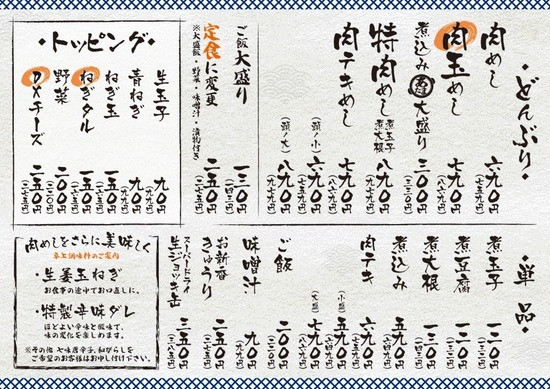 ・どんぶり・
肉めし 六九〇円(七五九円)
肉玉めし 七九〇円(八六九円)
煮込み 大盛り 三〇〇円(三三〇円)
特肉めし 煮玉子 煮大根 八九〇円(九七九円)
肉テキめし 七九〇円(八六九円)
(頭ノ小) 六九〇円(七五九円)
(頭ノ大) 八九〇円(九七九円)
ご飯大盛り 一三〇円(一四三円)
定食に変更 二五〇円(二七五円)
※大盛飯・野菜・味噌汁・漬物付き
・トッピング・
生玉子 九〇円(九九円)
青ねぎ 九〇円(九九円)
ねぎ玉 一五〇円(一六五円)
ねぎタル 一五〇円(一六五円)
野菜 二〇〇円(二二〇円)
DXチーズ 二五〇円(二七五円)
・単品・
煮玉子 一三〇円(一四三円)
煮豆腐 一三〇円(一四三円)
煮大根 一三〇円(一四三円)
煮込み 五九〇円
肉テキ
(小盛) 五九〇円
(大盛) 七九〇円
ご飯 二〇〇円(二二〇円)
味噌汁 九〇円(九九円)
お新香 きゅうり
スーパードライ 生ジョッキ缶 三五〇円(三八五円)
肉めしをさらに美味しく
卓上調味料のご案内
・生姜玉ねぎ
お食事の途中でお口直しに。
・特製辛味ダレ
ほどよい辛味と酸味で、
味の変化を楽しめます。
※その他 七味唐辛子、和がらしを
ご希望のお客様はお申し付け下さい。